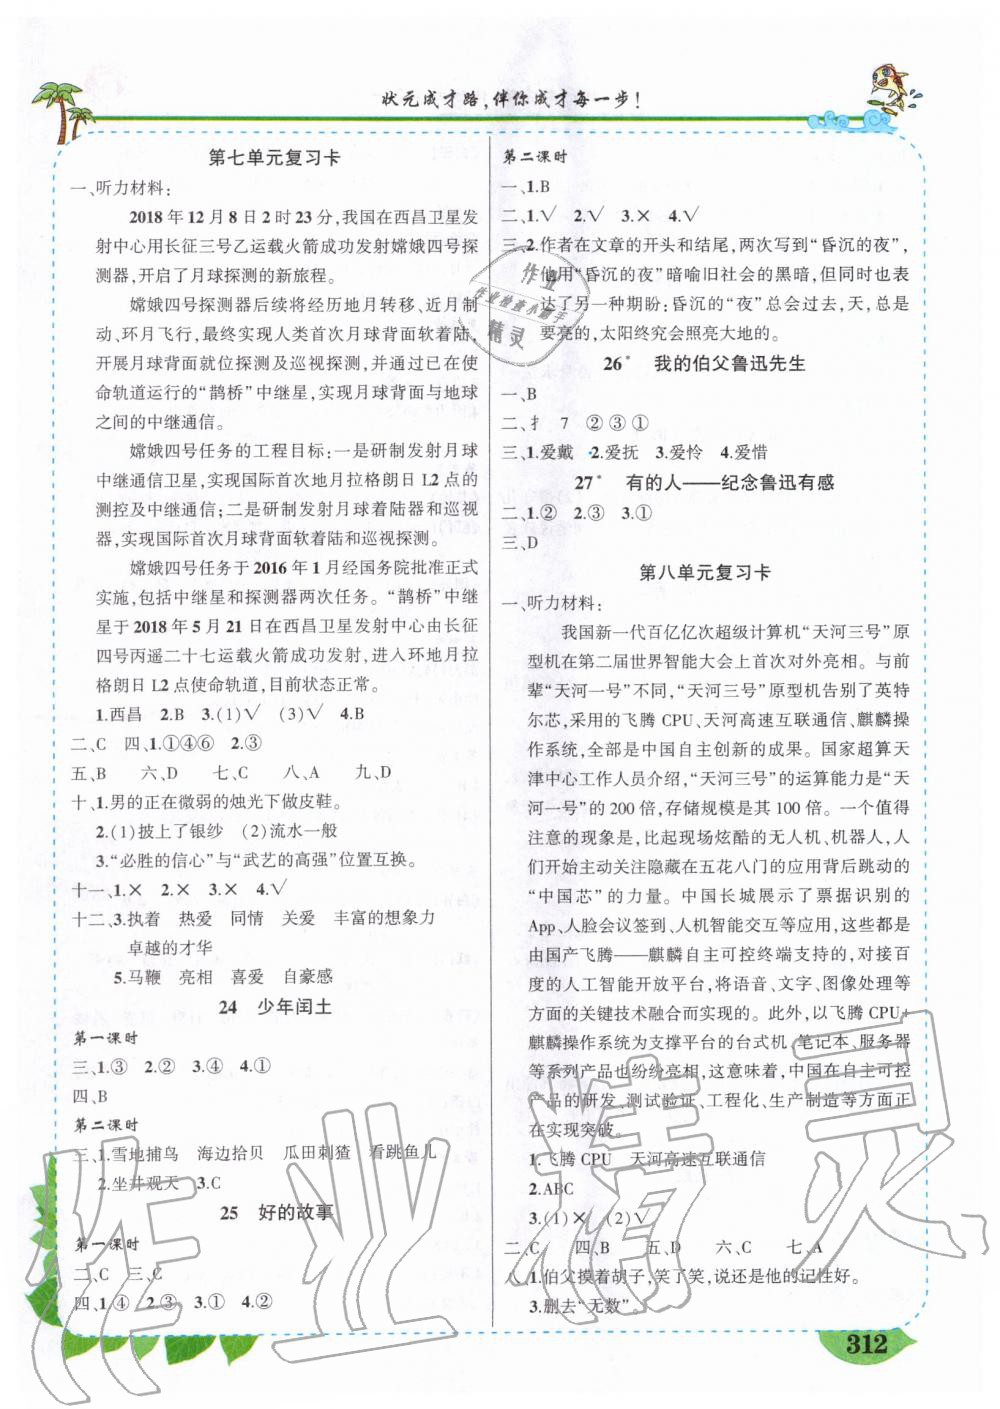 状元成才路,伴你成才每一步!
第七单元复习卡
一、听力材料:
2018年12月8日2时23分,我国在西昌卫星发
射中心用长征三号乙运载火箭成功发射嫦娥四号探
测器,开启了月球探测的新旅程。
嫦娥四号探测器后续将经历地月转移、近月制
动、环月飞行,最终实现人类首次月球背面软着陆,
开展月球背面就位探测及巡视探测,并通过已在使
命轨道运行的“鹊桥”中继星,实现月球背面与地球
之间的中继通信。
嫦娥四号任务的工程目标:一是研制发射月球
中继通信卫星,实现国际首次地月拉格朗日L2点的
测控及中继通信;二是研制发射月球着陆器和巡视
器,实现国际首次月球背面软着陆和巡视探测。
嫦娥四号任务于2016年1月经国务院批准正式
实施,包括中继星和探测器两次任务。“鹊桥”中继
星于2018年5月21日在西昌卫星发射中心由长征
四号丙遥二十七运载火箭成功发射,进入环地月拉
格朗日L2点使命轨道,目前状态正常。
1.西昌 2.B 3.(1)√ (3)√ 4.B
二、C 四、1.①④⑥ 2.③
五、B 六、D 七、C 八、A 九、D
十、1.男的正在微弱的烛光下做皮鞋。
2.(1)披上了银纱 (2)流水一般
3.“必胜的信心”与“武艺的高强”位置互换。
十一、1.× 2.× 3.√ 4.√
十二、3.执着 热爱 同情 关爱 丰富的想象力
卓越的才华
5.马鞭 亮相 喜爱 自豪感
24 少年闰土
第一课时
三、1.③ 2.② 3.④ 4.①
四、B
第二课时
三、1.雪地捕鸟 海边拾贝 瓜田刺猹 看跳鱼儿
2.坐井观天 3.C
25 好的故事
第一课时
二、C 三、C
四、1.④ 2.③ 3.① 4.②
第二课时
一、1.B
二、1.√ 2.√ 3.× 4.√
三、2.作者在文章的开头和结尾,两次写到“昏沉的夜”,
他用“昏沉的夜”暗喻旧社会的黑暗,但同时也表
达了另一种期盼:昏沉的“夜”总会过去,天,总是
要亮的,太阳终究会照亮大地的。
26* 我的伯父鲁迅先生
一、B
二、扌 7 ②③①
三、1.爱戴 2.爱抚 3.爱怜 4.爱惜
27* 有的人——纪念鲁迅有感
二、1.② 2.③ 3.①
三、D
第八单元复习卡
一、听力材料:
我国新一代百亿亿次超级计算机“天河三号”原
型机在第二届世界智能大会上首次对外亮相。与前
辈“天河一号”不同,“天河三号”原型机告别了英特
尔芯,采用的飞腾CPU、天河高速互联通信、麒麟操
作系统,全部是中国自主创新的成果。国家超算天
津中心工作人员介绍,“天河三号”的运算能力是“天
河一号”的200倍,存储规模是其100倍。一个值得
注意的现象是,比起现场炫酷的无人机、机器人,人
们开始主动关注隐藏在五花八门的应用背后跳动的
“中国芯”的力量。中国长城展示了票据识别的
App、人脸会议签到、人机智能交互等应用,这些都是
由国产飞腾——麒麟自主可控终端支持的,对接百
度的人工智能开放平台,将语音、文字、图像处理等
方面的关键技术融合而实现的。此外,以飞腾CPU+
麒麟操作系统为支撑平台的台式机、笔记本、服务器
等系列产品也纷纷亮相,这意味着,中国在自主可控
产品的研发、测试验证、工程化、生产制造等方面正
在实现突破。
1.飞腾CPU 天河高速互联通信
2.ABC
3.(1)× (2)√
二、C 四、B 五、D 六、C 七、A
八、1.伯父摸着胡子,笑了笑,说还是他的记性好。
3.删去“无数”。
312
作业精灵